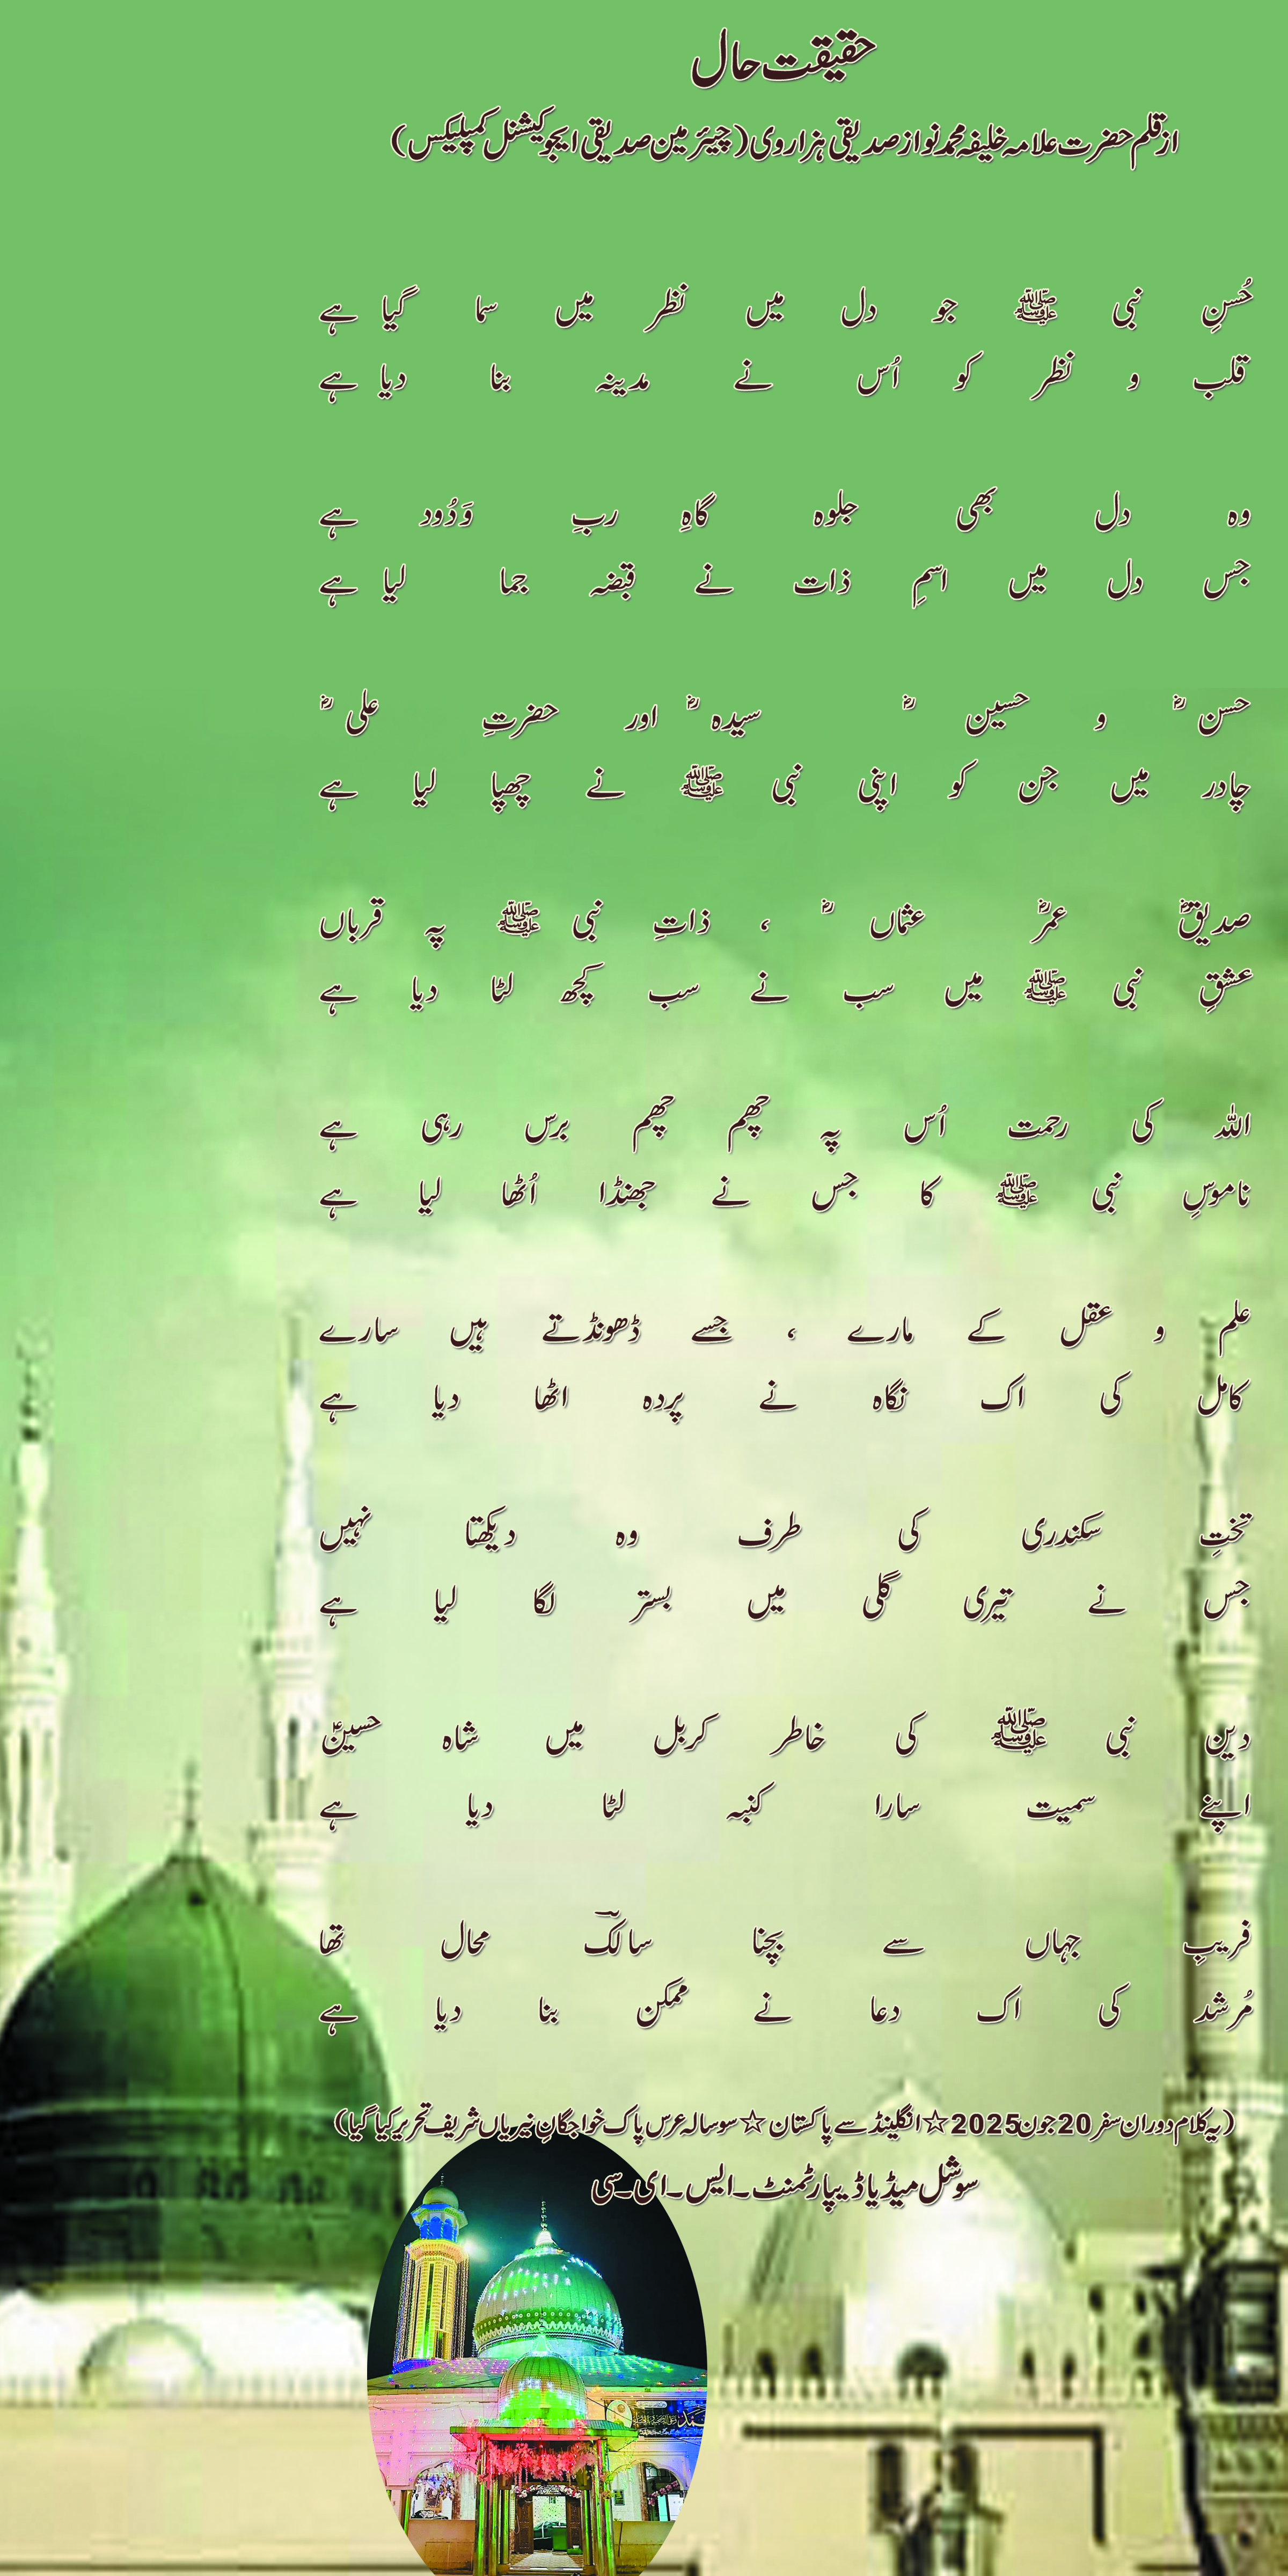 حقیقت حال
از قلم حضرت علامہ خلیفہ محمد نواز صدیقی ہزاروی (چیئرمین صدیقی ایجوکیشنل کمپلیکس)
حُسنِ نبی ﷺ جو دل میں نظر میں سما گیا ہے
قلب و نظر کو اُس نے مدینہ بنا دیا ہے
وہ دل بھی جلوہ گاہِ ربِ وَدُود ہے
جس دل میں اسمِ ذات نے قبضہ جما لیا ہے
حسن ؓ و حسین ؓ سیدہ ؓ اور حضرتِ علی ؓ
چادر میں جن کو اپنی نبی ﷺ نے چھپا لیا ہے
صدیقؓ عمرؓ عثماں ؓ ، ذاتِ نبی ﷺ پہ قرباں
عشقِ نبی ﷺ میں سب نے سب کچھ لٹا دیا ہے
اللہ کی رحمت اُس پہ چھم چھم برس رہی ہے
ناموسِ نبی ﷺ کا جس نے جھنڈا اُٹھا لیا ہے
علم و عقل کے مارے ، جسے ڈھونڈتے ہیں سارے
کامل کی اک نگاہ نے پردہ اٹھا دیا ہے
تختِ سکندری کی طرف وہ دیکھتا نہیں
جس نے تیری گلی میں بستر لگا لیا ہے
دین نبی ﷺ کی خاطر کربل میں شاہ حسینؑ
اپنے سمیت سارا کنبہ لٹا دیا ہے
فریبِ جہاں سے بچنا سالکؔ محال تھا
مُرشد کی اک دعا نے ممکن بنا دیا ہے
(یہ کلام دوران سفر 20 جون 2025 ☆ انگلینڈ سے پاکستان ☆ سوسالہ عرس پاک خواجگانِ نیریاں شریف تحریر کیا گیا)
سوشل میڈیا ڈیپارٹمنٹ۔ایس۔ای۔سی